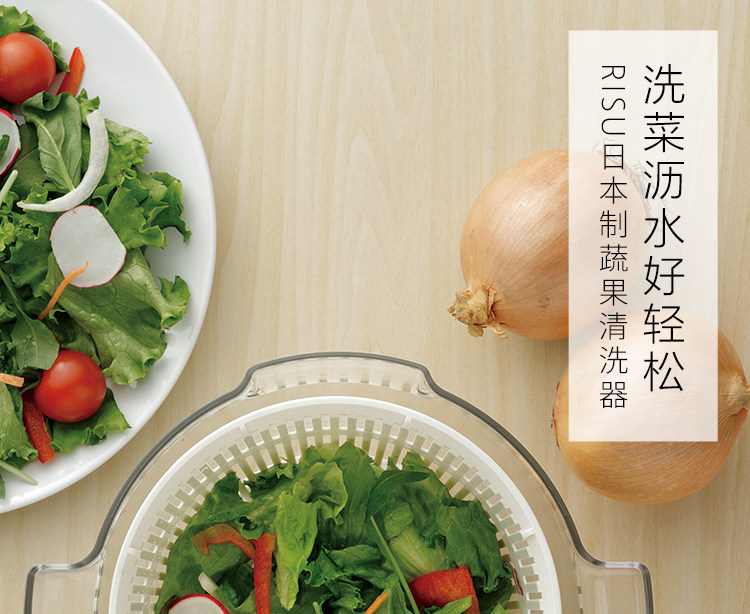 洗菜沥水好轻松
RISU日本制蔬果清洗器